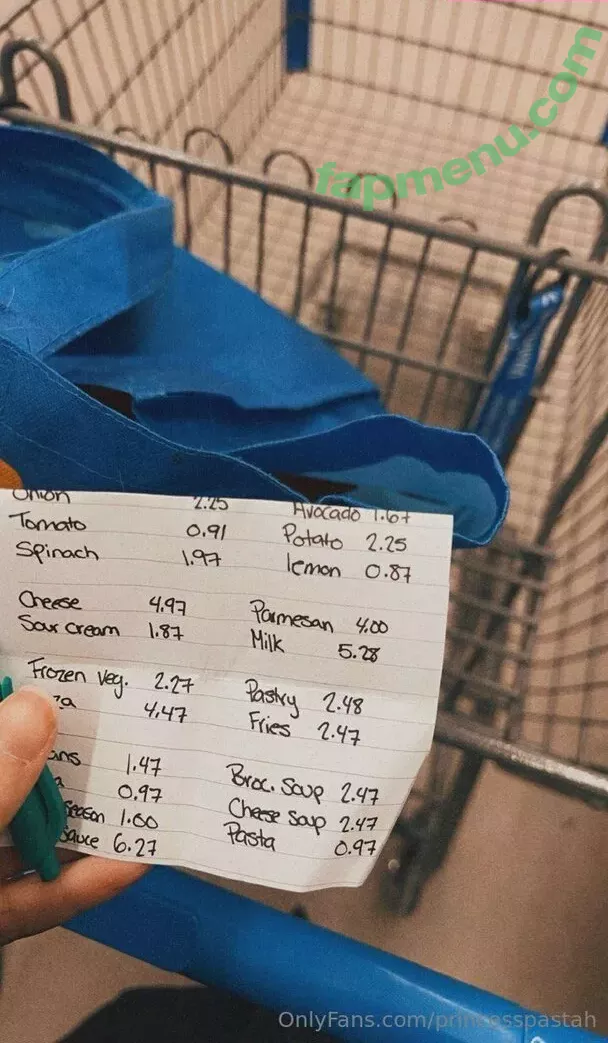 fapmenu.com
Onion 2.25 Avocado 1.67
Tomato 0.91 Potato 2.25
Spinach 1.97 lemon 0.87
Cheese 4.97 Parmesan 4.00
Sour cream 1.87 Milk 5.28
Frozen veg. 2.27 Pastry 2.48
za 4.47 Fries 2.47
ans 1.47 Broc. Soup 2.47
a 0.97 Cheese soup 2.47
season 1.00 Pasta 0.97
sauce 6.27
OnlyFans.com/princesspastah